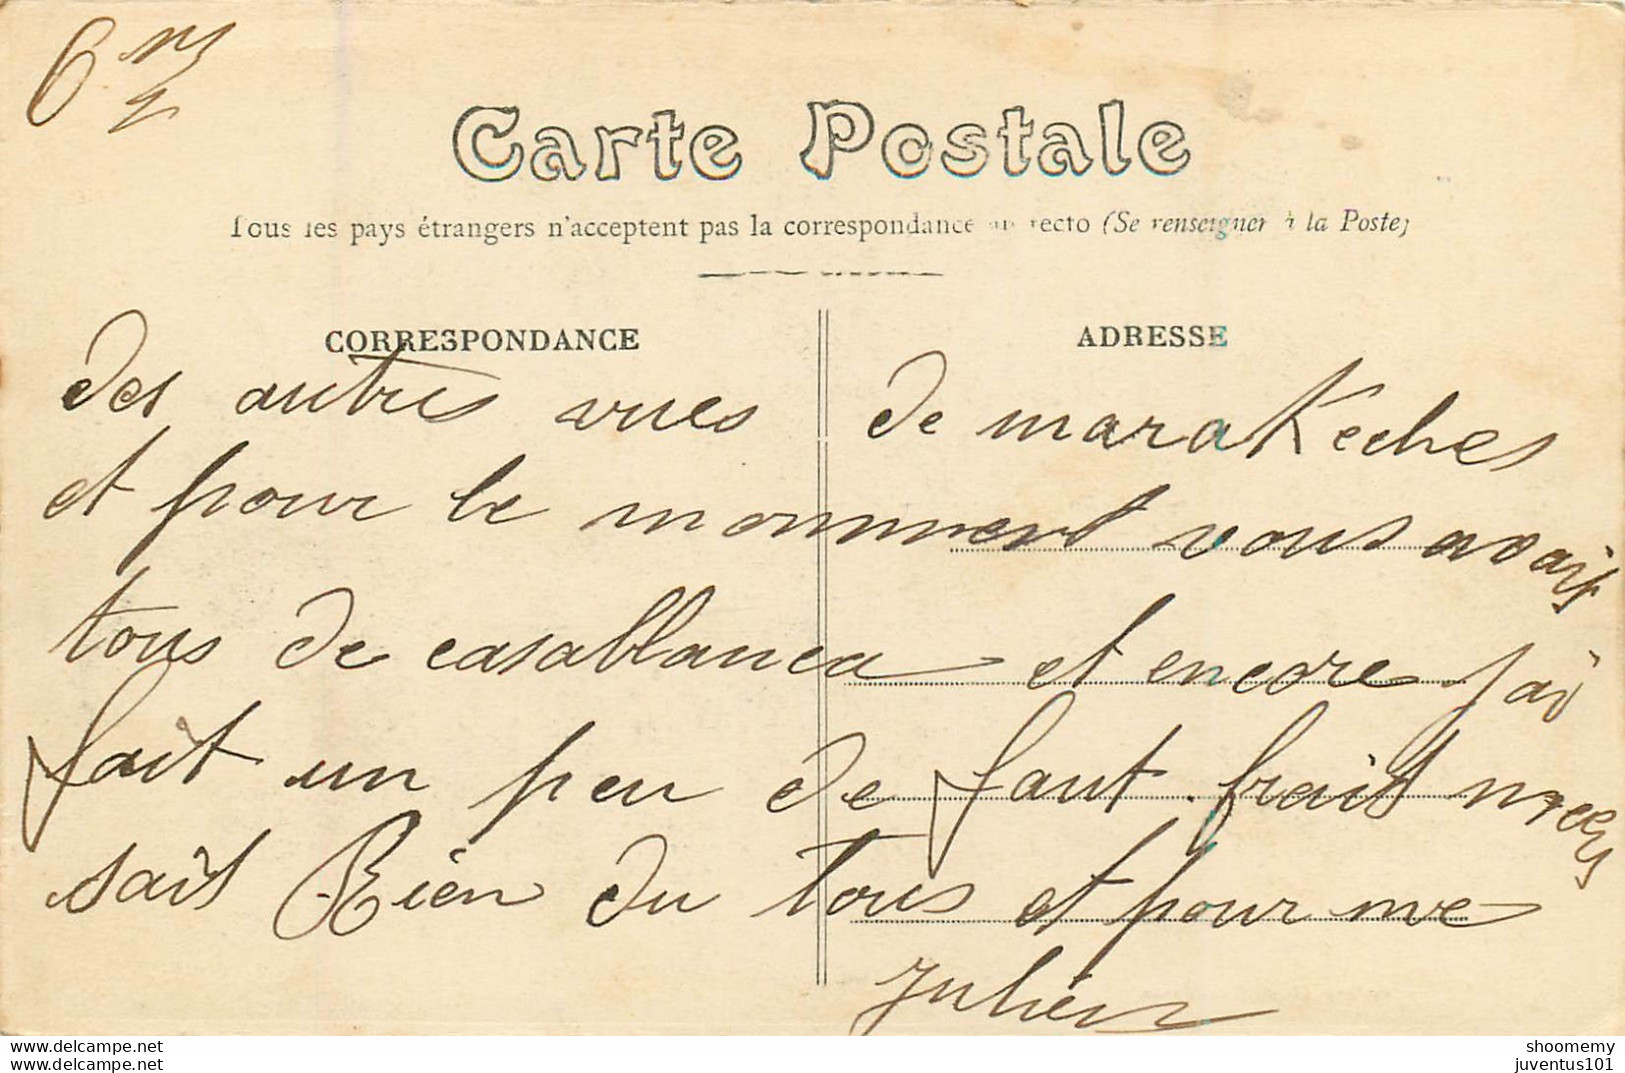 6
Carte Postale
Tous les pays étrangers n'acceptent pas la correspondance au recto (Se renseigner à la Poste)
CORRESPONDANCE
ADRESSE
des autres vues de maraKeches
et pour le momment vous avais
tous de casablanca et encore j'ai
fait un peu de faut frait
sait Rien du tous et pour me
Julien
www.delcampe.net
shoomemy
juventus101